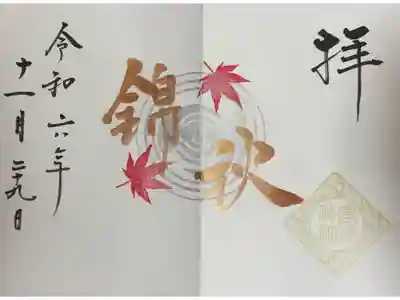 拝
錦
令和六年
十一月二十九日